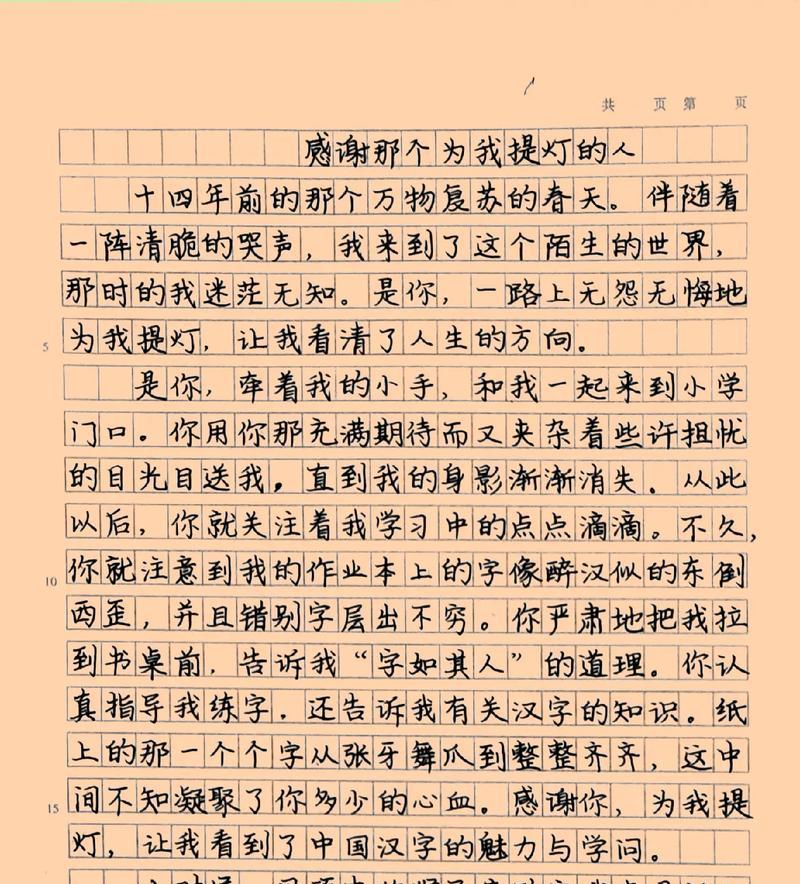 共 页 第 页
感谢那个为我提灯的人
十四年前的那个万物复苏的春天。伴随着
一阵清脆的哭声，我来到了这个陌生的世界，
那时的我迷茫无知。是你，一路上无怨无悔地
5 为我提灯，让我看清了人生的方向。
是你，牵着我的小手，和我一起来到小学
门口。你用你那充满期待而又夹杂着些许担忧
的目光目送我，直到我的身影渐渐消失．从此
以后，你就关注着我学习中的点点滴滴。不久，
10 你就注意到我的作业本上的字像醉汉似的东倒
西歪，并且错别字层出不穷。你严肃地把我拉
到书桌前，告诉我“字如其人”的道理。你认
真指导我练字．还告诉我有关汉字的知识。纸
上的那一个个字从张牙舞爪到整整齐齐，这中
15 间不知凝聚了你多少的心血。感谢你，为我提
灯，让我看到了中国汉字的魅力与学问。